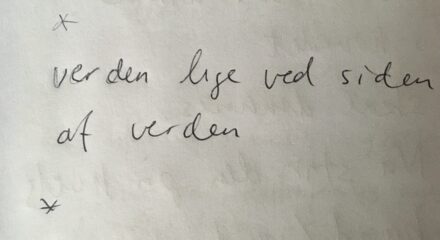 *
verden lige ved siden
af verden
*